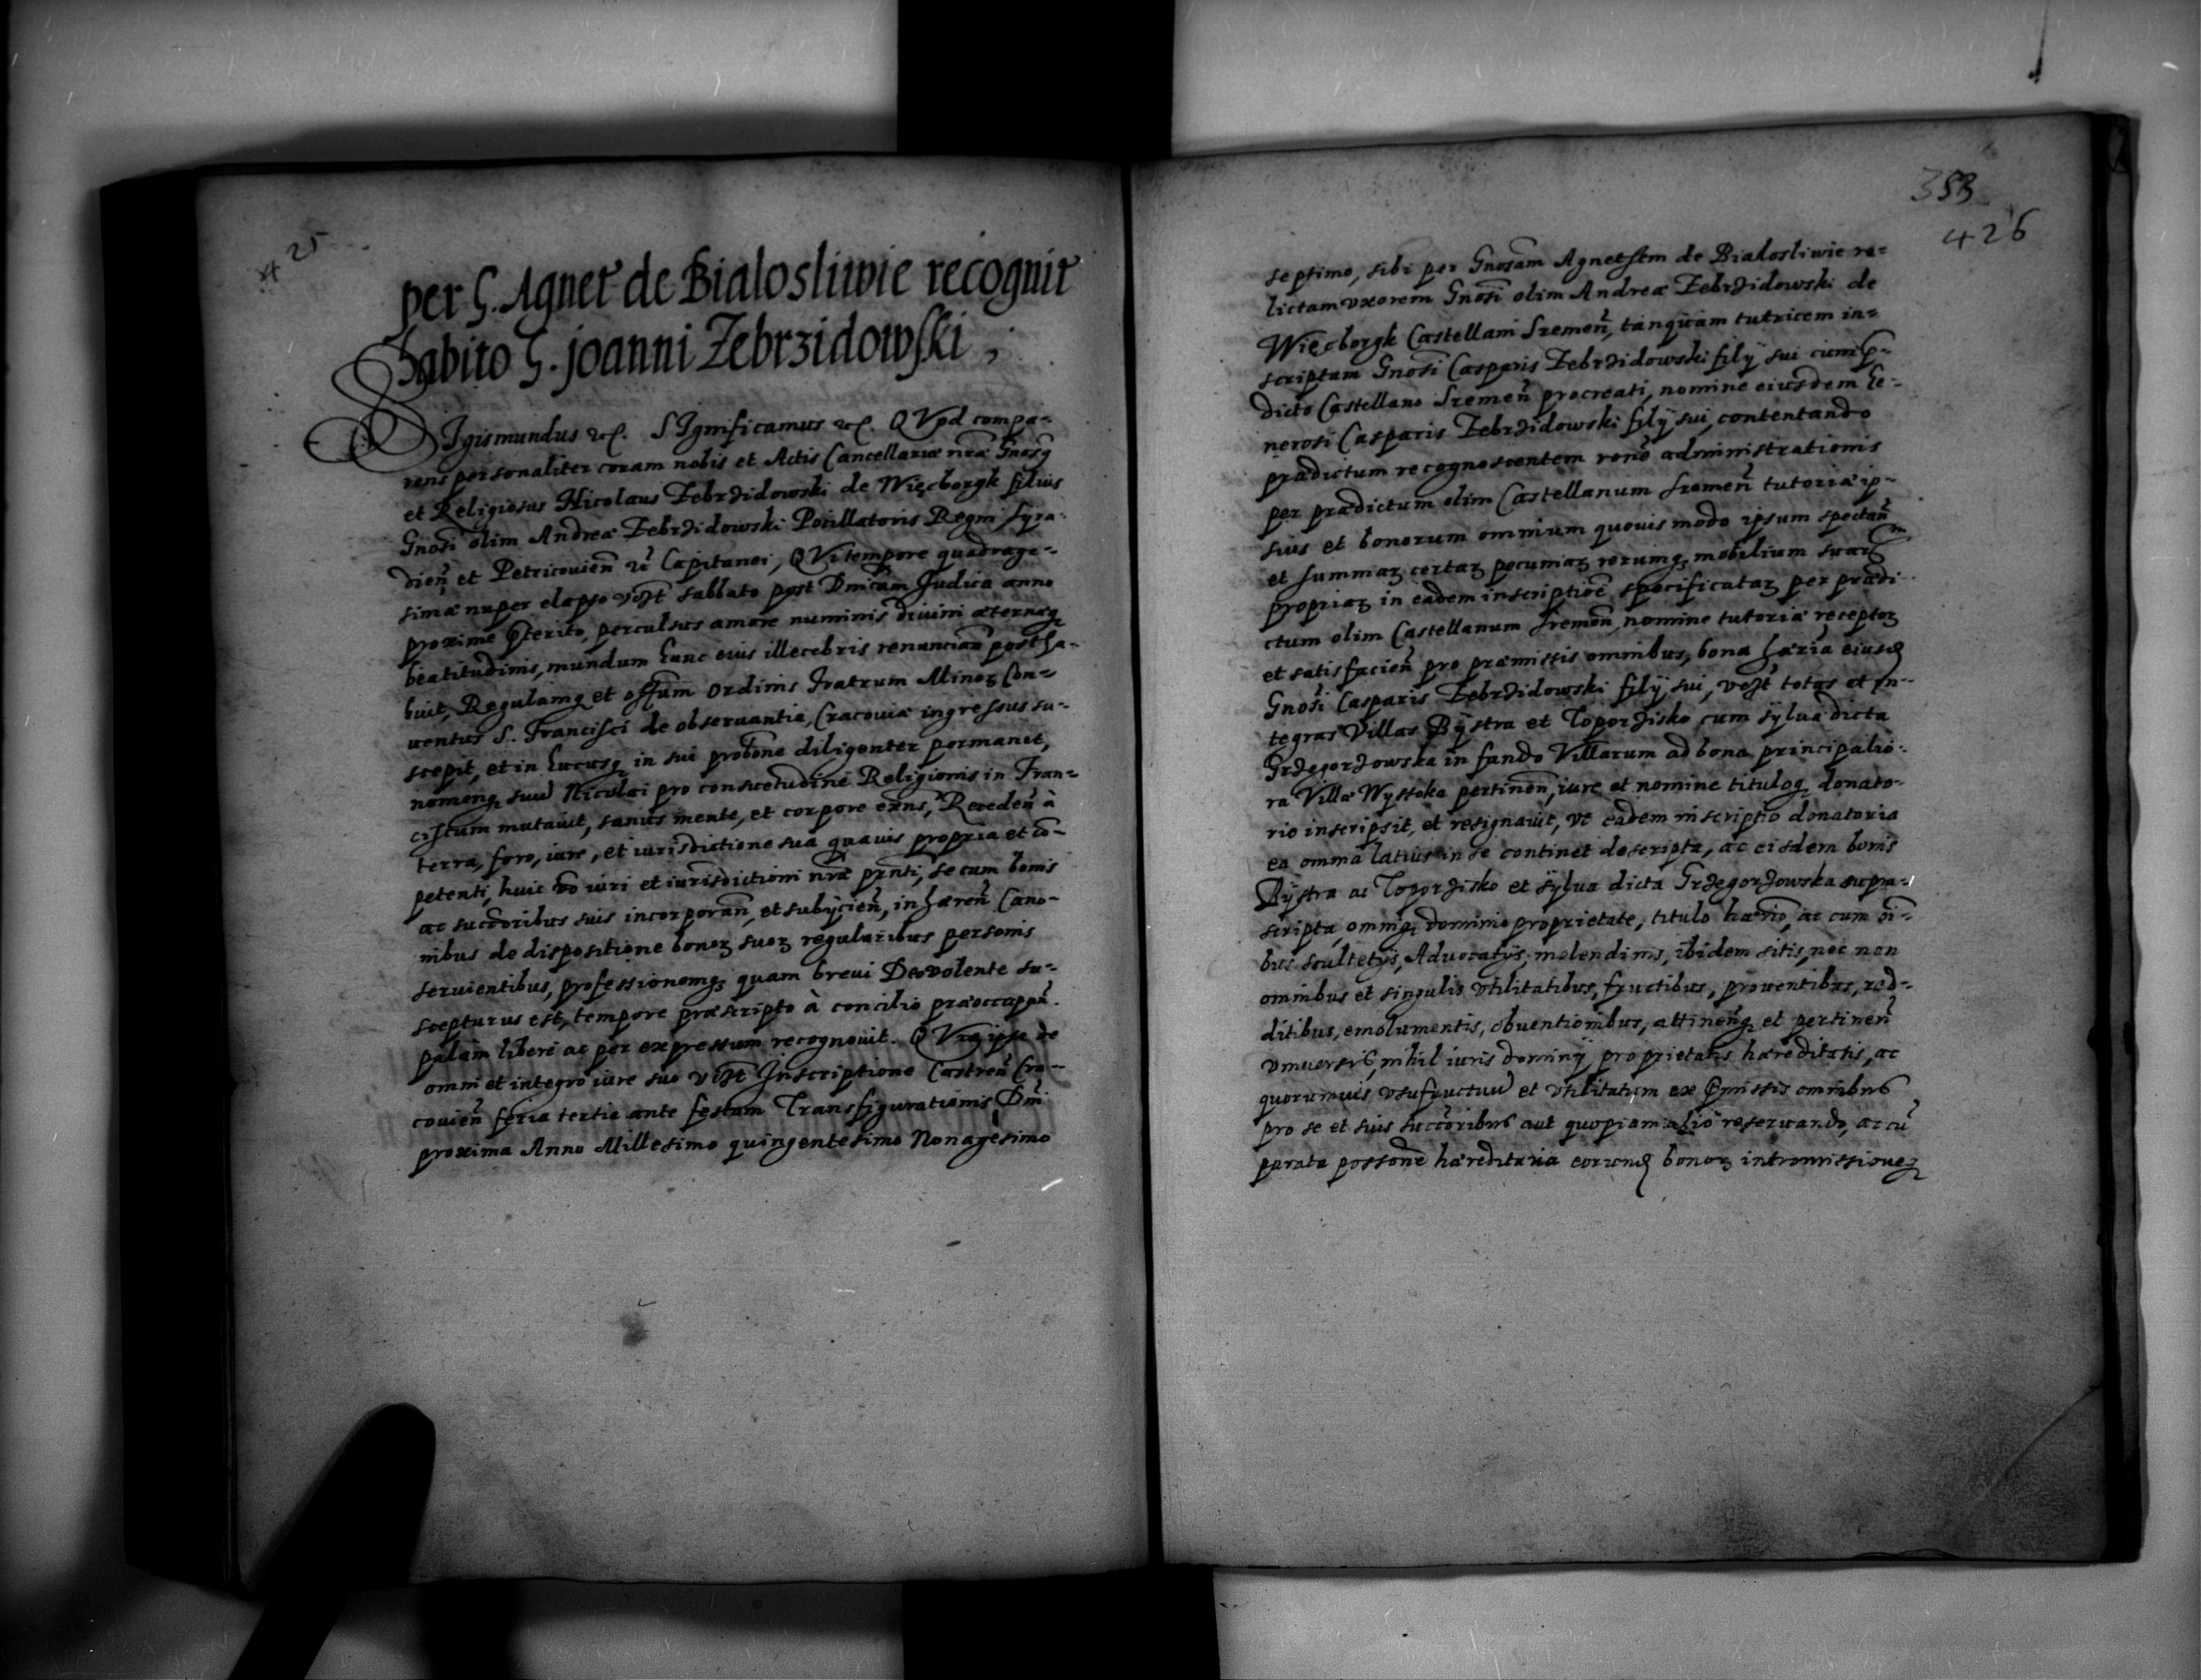 425
per G. Agnet de Bialosliwie recognit
habito G. joanni Zebrzidowski ;
SIgismundus etc. SIgnificamus etc. QVod compa-
rens personaliter coram nobis et Actis Cancellariæ nræ Gnosq
et Religiosus Nicolaus Zebrzidowski de Więcborgk filius
Gnosi olim Andreæ Zebrzidowski Pocillatoris Regni Syra-
dien et Petricouien etc Capitanei, QVi tempore quadrage-
simæ nuper elapso vizt sabbato post Dnicam Judica anno
proxime pterito, perculsus amore numinis diuini æternæq
beatitudinis, mundum hunc eius illecebris renuncian postha-
buit, Regulamq et Ordinis Fratrum Minoꝝ Con-
uentus S. Francisci de obseruantia, Cracouiæ ingressus su-
scepit, et in hucusq in sui probone diligenter permanet,
nomenq suu Nicolai pro consuetudine Religionis in Fran-
ciscum mutauit, sanus mente, et corpore exns, Receden à
terra, foro, iure, et iurisdictione sua quauis propria et co-
petenti, huic vo iuri et iurisdictioni nræ prnti, se cum bonis
ac succoribus suis incorporan, et subÿcien, inhæren Cano-
nibus de dispositione bonoꝝ suoꝝ regularibus personis
seruientibus, professionemq quam breui Deo volente su-
scepturus est, tempore præscripto à concilio præoccappu.
palam liberè ac per expressum recognouit. QVia ipse de
omni et integro iure suo vizt Inscriptione Castren Cra-
couien feria tertia ante festam Transfigurationis Dni
proxima Anno Millesimo quingentesimo Nonagesimo
353
426
septimo, sibi per Gnosam Agnethem de Bialosliwie re-
lictam vxorem Gnosi olim Andreæ Zebrzidowski de
Więcborgk Castellani Sremen, tanquam tutricem in-
scriptam Gnosi Casparis Zebrzidowski filÿ sui cum p-
dicto Castellano Sremen procreati, nomine eiusdem Ge-
nerosi Casparis Zebrzidowski filÿ sui, contentando
prædictum recognoscentem rone administrationis
per prædictum olim Castellanum Sremen tutoriæ ip-
sius et bonorum omnium quouis modo ipsum spectan
et summaꝝ certaꝝ pecuniaꝝ rerumq mobilium suaꝝ
propriaꝝ in eadem inscriptioe specificataꝝ per prædi-
ctum olim Castellanum Sremen, nomine tutoriæ receptoꝝ
et satisfacien pro præmissis omnibus, bona hæria eiusd
Gnosi Casparis Zebrzidowski filÿ sui, vizt totas et in-
tegras Villas Bÿstra et Toporzisko cum sÿlua dicta
Grzegorzowska in fundo Villarum ad bona principalio-
ra Villæ Wyssoka pertinen, iure et nomine tituloq donato-
rio inscripsit, et resignauit, vt eadem inscriptio donatoria
ea omnia latius in se continet descripta, ac eisdem bonis
Bÿstra ac Toporzisko et sÿlua dicta Grzegorzowska supra-
scripta, omniq dominio proprietate, titulo hærio, ac cum oi-
bus scultetÿs, Aduocatÿs, molendinis, ibidem sitis, nec non
omnibus et singulis vtilitatibus, fructibus, prouentibus, red-
ditibus, emolumentis, obuentionibus, attinenq et pertinen
vniuersis, nihil iuris dominÿ proprietatis hæreditatis, ac
quorumuis vsufructuu et vtilitatum ex pmissis omnibus
pro se et suis succoribus aut quopiam alio reseruando, ac cu
parata possone hæreditaria eorund bonoꝝ intromissioneq